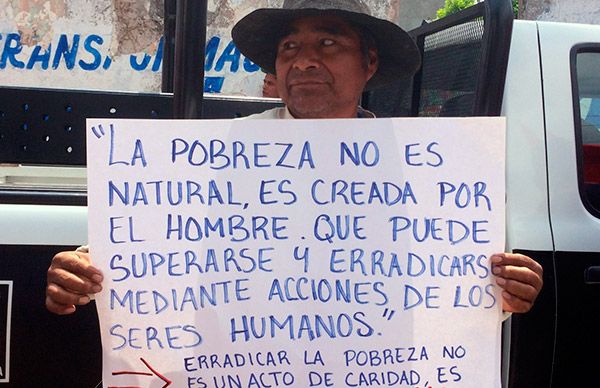 TRANSFORMA
"LA POBREZA NO ES
NATURAL, ES CREADA POR
EL HOMBRE. QUE PUEDE
SUPERARSE Y ERRADICARS
MEDIANTE ACCIONES DE LOS
SERES HUMANOS."
→ ERRADICAR LA POBREZA NO
ES UN ACTO DE CARIDAD, ES